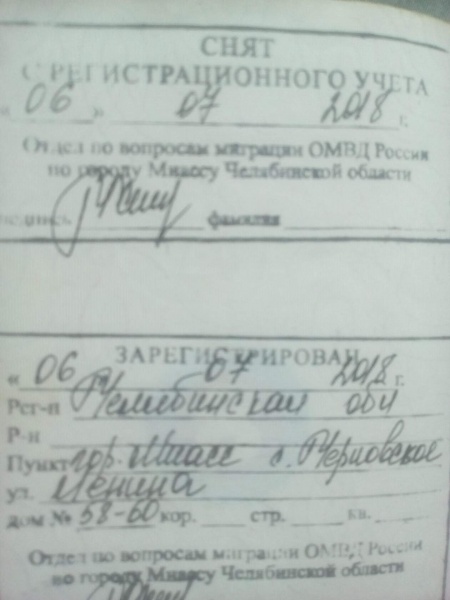 СНЯТ
С РЕГИСТРАЦИОННОГО УЧЕТА
« 06 » 07 2018 г.
Отдел по вопросам миграции ОМВД России
по городу Миассу Челябинской области
подпись фамилия
ЗАРЕГИСТРИРОВАН
« 06 07 2018 г.
Рег-н Челябинская обл
Р-н
Пункт гор. Миасс с. Черновское
ул. Ленина
дом № 58-60 кор. стр. кв.
Отдел по вопросам миграции ОМВД России
по городу Миассу Челябинской области